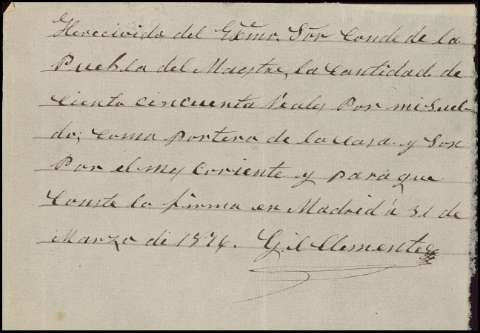 He recivido del Exmo. Sor Conde de la
Puebla del Maestre, la Cantidad de
Ciento cincuenta Reales Por mi Suel-
do, Como portero de la Casa y Son
Por el mes Coriente y para que
Conste lo firma en Madrid á 31 de
Marzo de 1876. Gil Clemente